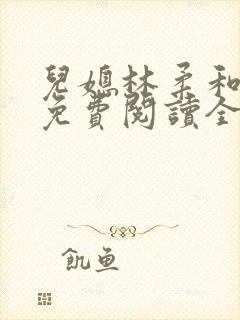 兒媳林柔和
免費閱讀全
飢魚